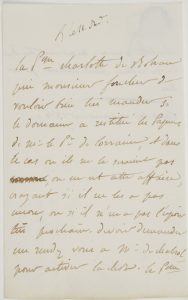 la Psse charlotte de Rohan
prie monsieur foucher de
vouloir bien lui mander si
le domaine a restitué les Papiers
de Mr le Pce de Lorraine et dans
le cas ou il ne le seroient pas
on en est cette affaire,
croyant si il ne les a pas
encore ou si il n'a pas l'espoir
très prochain, devoir demander
un rendez vous a Mr de
pour activer la chose. la Psse